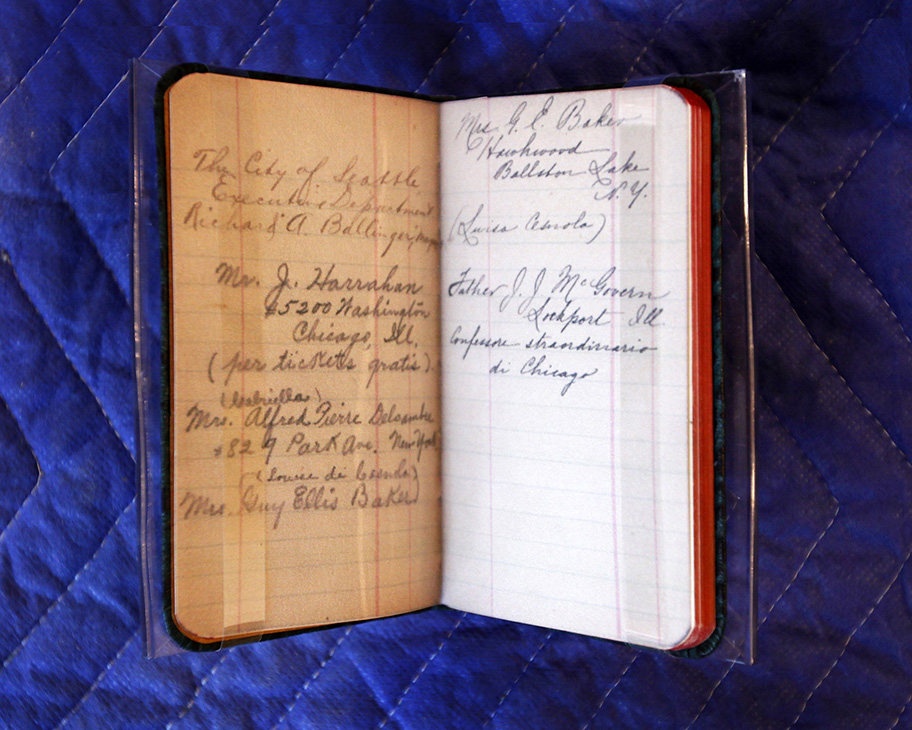 The City of Seattle
Executive Department
Richard A. Ballinger, Mayor
Mr. J. Harrahan
#5200 Washington
Chicago, Ill.
(per tickets gratis)
(Gabriella)
Mrs. Alfred Pierre Delcambre
#829 Park Ave. New York
(Louise di Cesnola)
Mrs. Guy Ellis Baker
Mrs. G. E. Baker
Hawkwood
Ballston Lake
N. Y.
(Luisa Cesnola)
Father J. J. McGovern
Lockport Ill.
Confessore straordinario
di Chicago